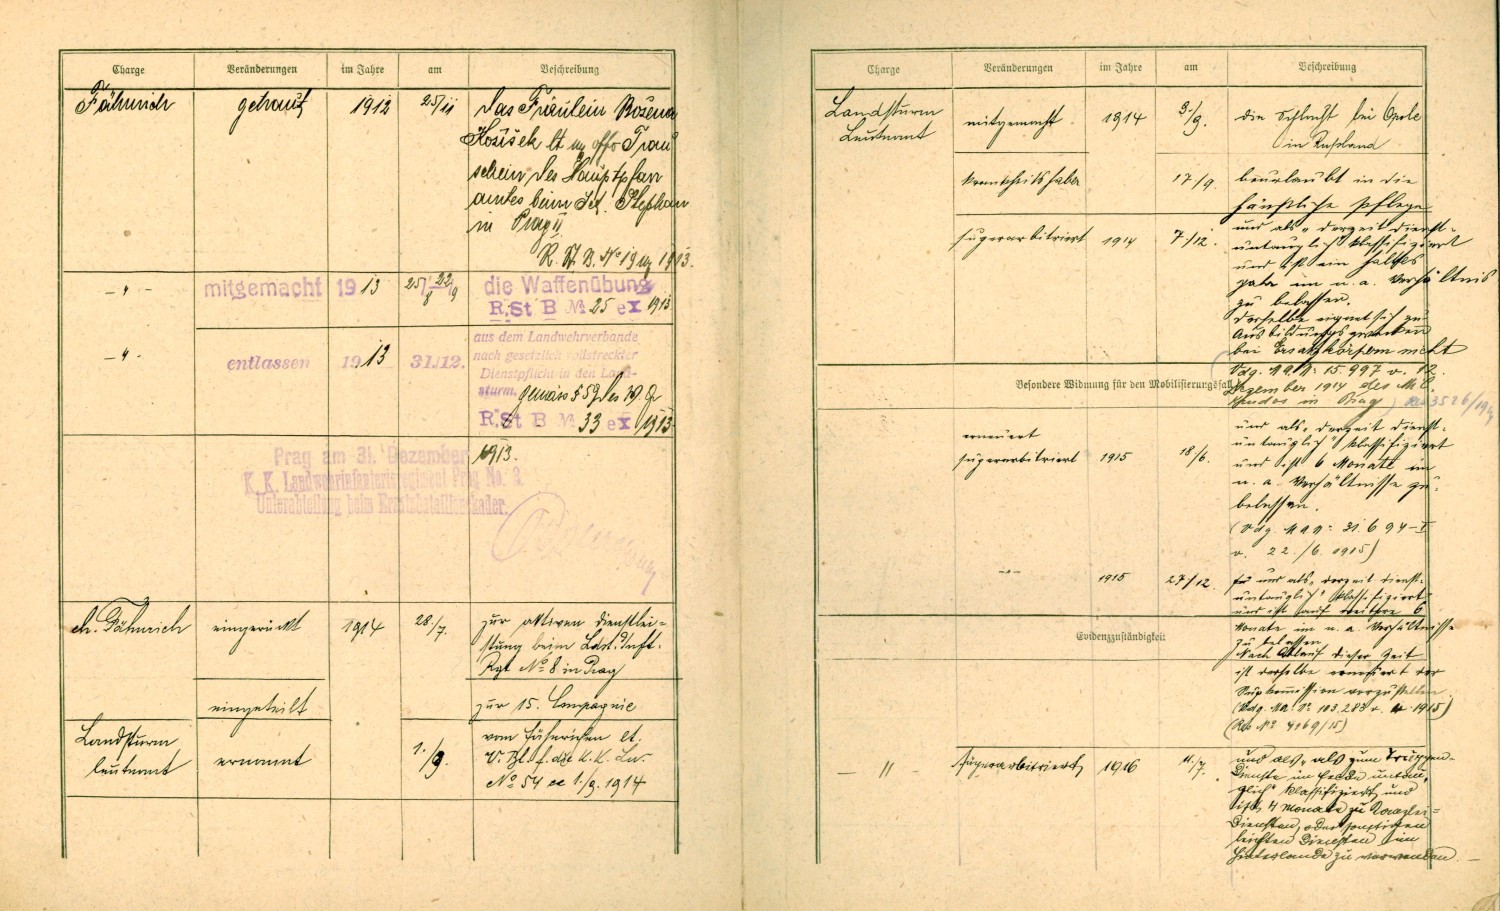 Charge Veränderungen im Jahre am Beschreibung
Fähnrich getraut 1912 25/11 das Fräulein Božena
Košišek lt
schein des Hauptpfarr
amtes beim Stephan
in Prag II
R. St. B. No 19 1913.
— " — mitgemacht 1913 25/8 22/9 die Waffenübung
R. St B No 25 ex 1913
— " — entlassen 1913 31/12. aus dem Landwehrverbande
nach gesetzlich vollstreckter
Dienstpflicht in den Land-
sturm. gemäss § des W. G.
R. St B No 33 ex 1913.
1913.
Prag am 31. Dezember
K. K. Landwehrinfanterieregiment Prag No. 8.
Unterabteilung beim Ersatzbataillonskader.
ch. Fähnrich eingerückt 1914 28./7. zur aktiven Dienstlei-
stung beim Inft.
Rgt No 8 in Prag
eingeteilt zur 15. Compagnie
Landsturm
leutnant ernannt 1./9. vom Fähnrichen lt.
V. Bl. f. die k. k. Lw.
No 54 1./9. 1914
Charge Veränderungen im Jahre am Beschreibung
Landsturm
Leutnant mitgemacht 1914 9./9. die Schlacht bei Opole
in Rußland
krankheitshalber 17/9. beurlaubt in die
häusliche Pflege
superarbitriert 1914 7./12. und als „derzeit dienst-
untauglich" klassifiziert
und ist ein halbes
Jahr im n. a. Verhältnis
zu belassen.
Derselbe eignet sich zu
Ausbildungszwecken
bei Ersatzkörpern nicht
Vdg. M.A. N: 15.997 v. 12.
Dezember 1914 des M.
Kmdos in Prag) 3526/1914
Besondere Widmung für den Mobilisierungsfall
erneuert
superarbitriert 1915 18/6. und als „derzeit dienst-
untauglich" klassifiziert
und ist 6 Monate im
n. a. Verhältnisse zu
belassen.
(Vdg. M.A. N: 31.694-I
v. 22./6. 1915)
—"— 1915 27/12. und als „derzeit dienst-
untauglich" klassifiziert
und ist auf weitere 6
Monate im n. a. Verhältnisse
zu belassen
Nach Ablauf dieser Zeit
ist derselbe der
Supkommission vorzustellen
(Vdg. M.A. No 103.283 v. 1915)
(Res No 4169/15)
Evidenzzuständigkeit
— " — superarbitriert 1916 11./7. und als „als zum Truppen-
Dienste im Felde untau-
glich" klassifiziert und
ist 4 Monate zu Kanzlei-
Diensten, oder sonstigen
leichten Diensten im
Hinterlande zu verwenden. —